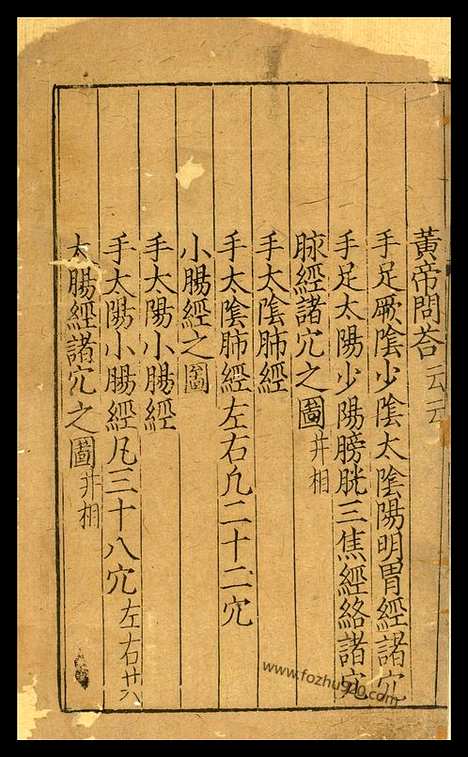 黃帝問荅云云
手足厥陰少陰太陰陽明胃經諸穴
手足太陽少陽膀胱三焦經絡諸穴
脉經諸穴之圖并相
手太陰肺經
手太陰肺經左右凢二十二穴
小腸經之圖
手太陽小腸經
手太陽小腸經凡三十八穴左右廿六
太腸經諸穴之圖并相